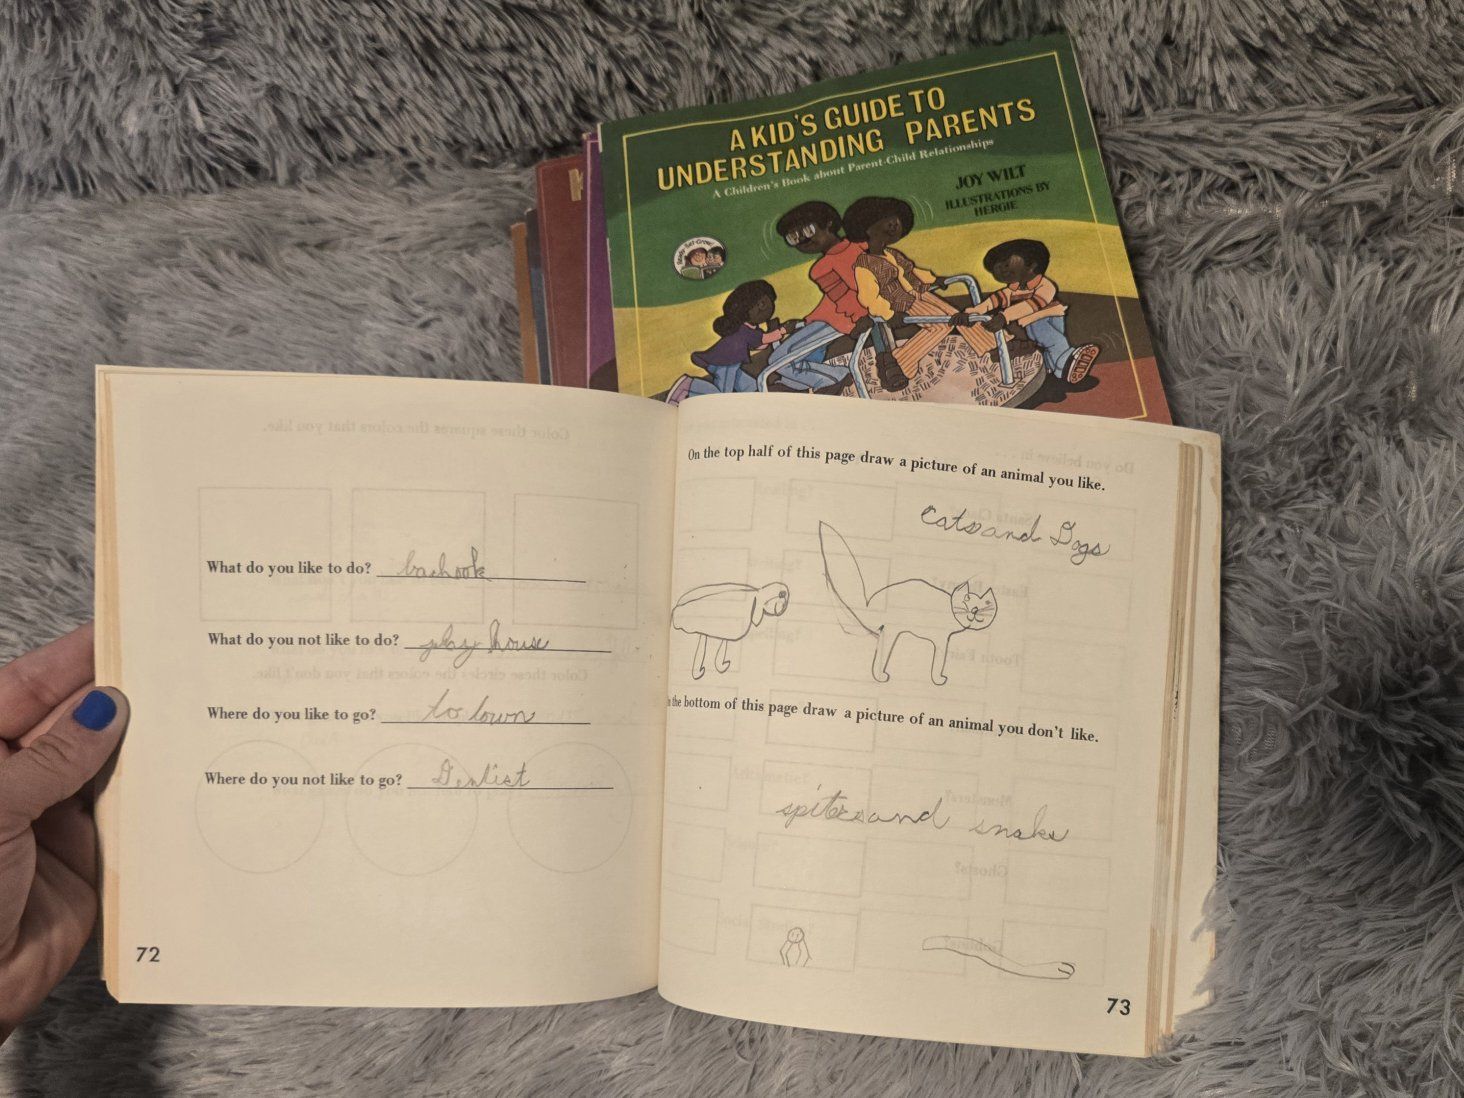 A KID'S GUIDE TO
UNDERSTANDING PARENTS
A Children's Book about Parent-Child Relationships
JOY WILT
ILLUSTRATIONS BY
HERGIE
Ready-Set-Grow!
What do you like to do?
What do you not like to do? play house
Where do you like to go? to town
Where do you not like to go? Dentist
72
On the top half of this page draw a picture of an animal you like.
Cats and Dogs
the bottom of this page draw a picture of an animal you don't like.
spiters and snake
73